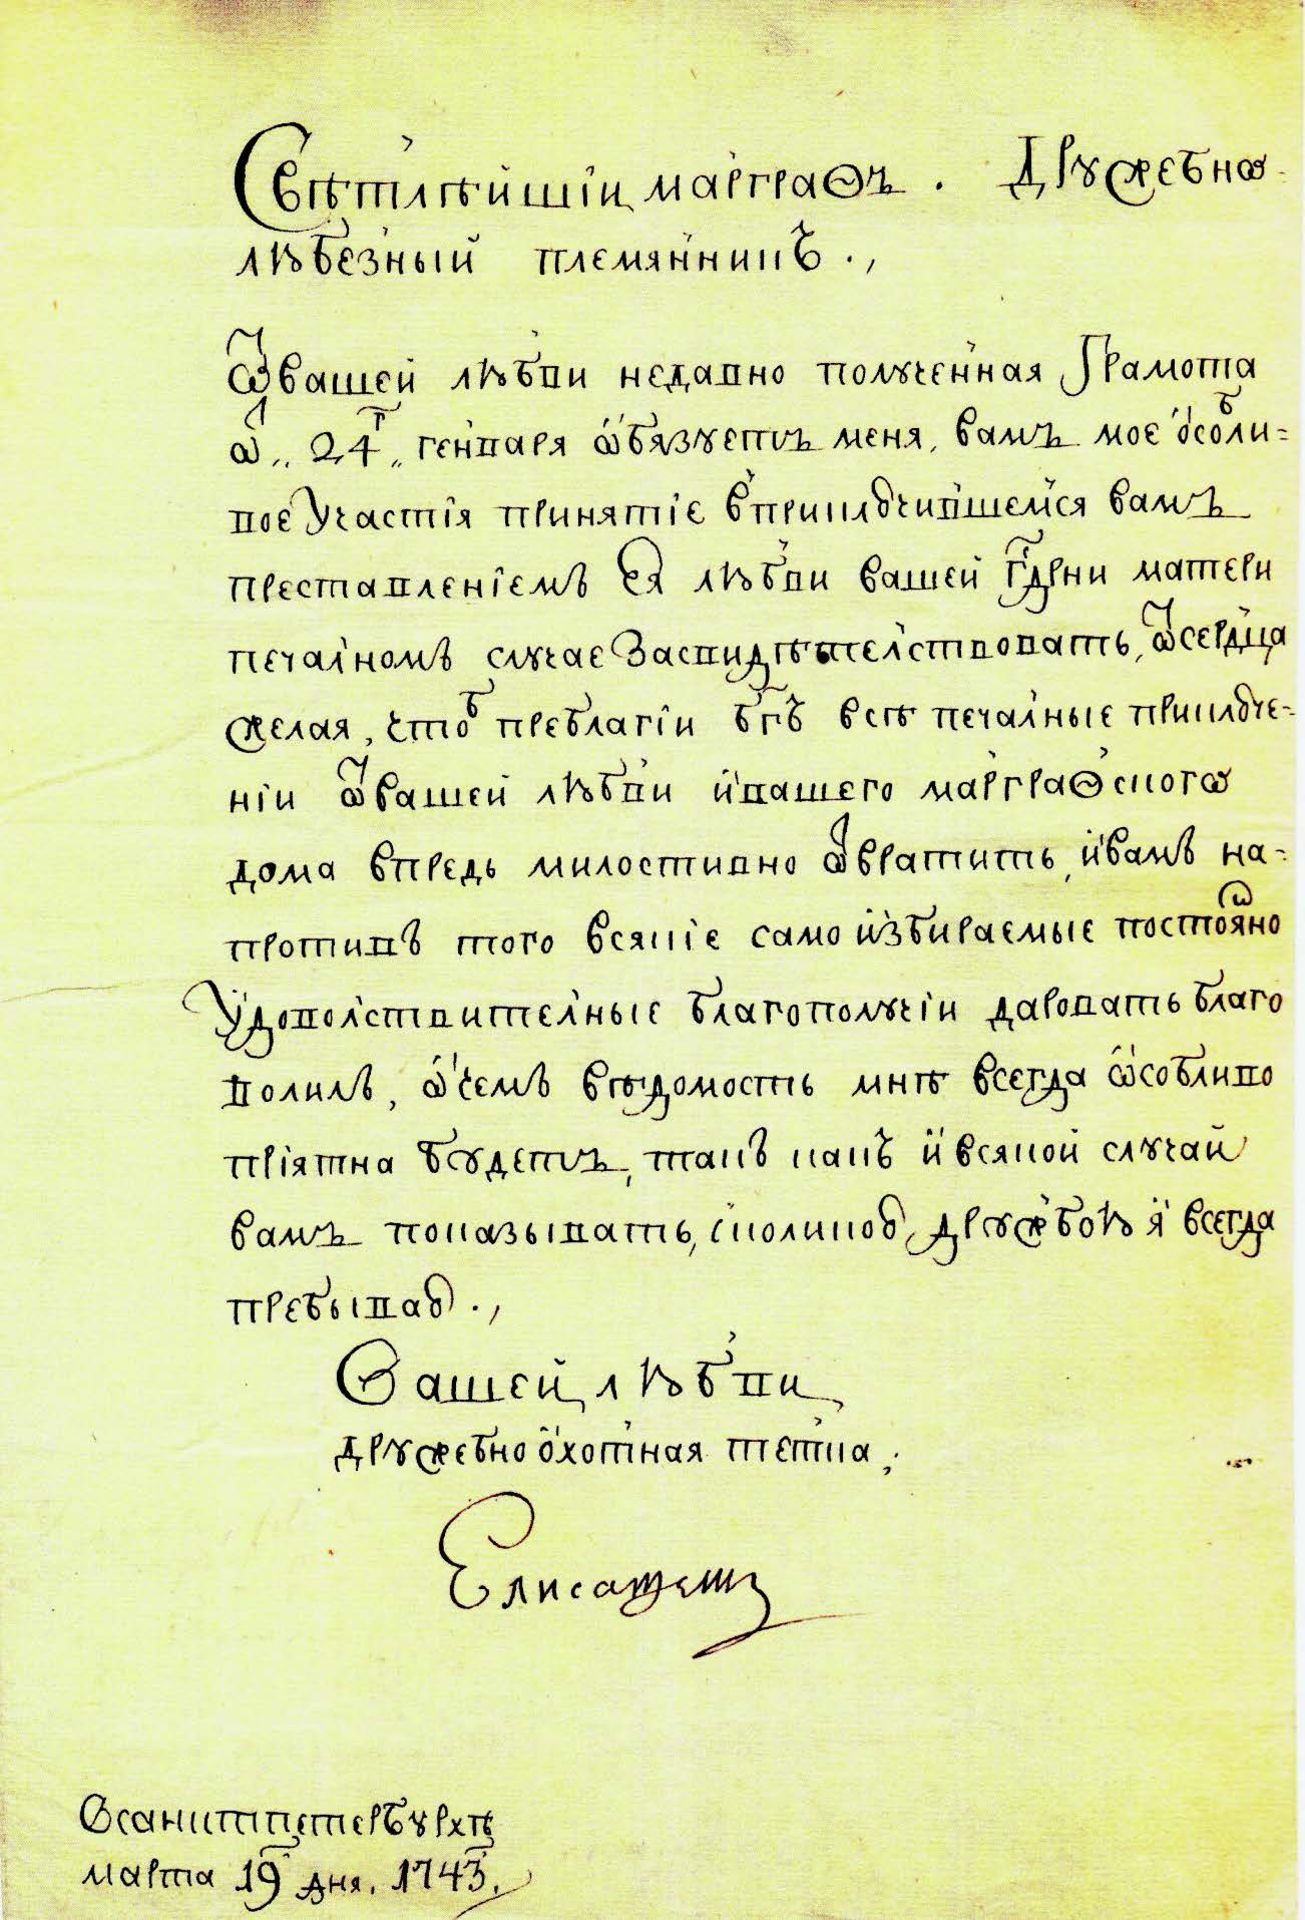 Свѣтлѣйшїи маргграѳъ. Дружебнѡ
любезный племянникъ.,
Ѿ вашей любви недавно полученная Грамота
ѿ „ 24г „ генваря ѡбязуетъ меня, вамъ мое особли=
вое Участїя принятїе вприключившемся вамъ
преставленїемъ Ея любви вашей Гдрни матери
печалномъ случае Засвидѣтелствовать, ѿсердца
желая, чтоб преблагїи бгъ всѣ печалные приключе=
нїи ѿ вашей любви и вашего маргграѳскогѡ
дома впредь милостивно ѿвратить, и вамъ на=
противъ того всякїе само избираемые постоѡяно
Удоволствителные благополучїи даровать благо
волилъ, ѡ чемъ вѣдомость мнѣ всегда ѡсобливо
прїятна будетъ, такъ какъ и всякой случай
вамъ показывать, сколикою дружбою я всегда
пребываю.,
Вашей любви
дружебноохотная тетка,
Елисаветъ
Всанктпетербурхѣ
марта 19г дня. 1743г.